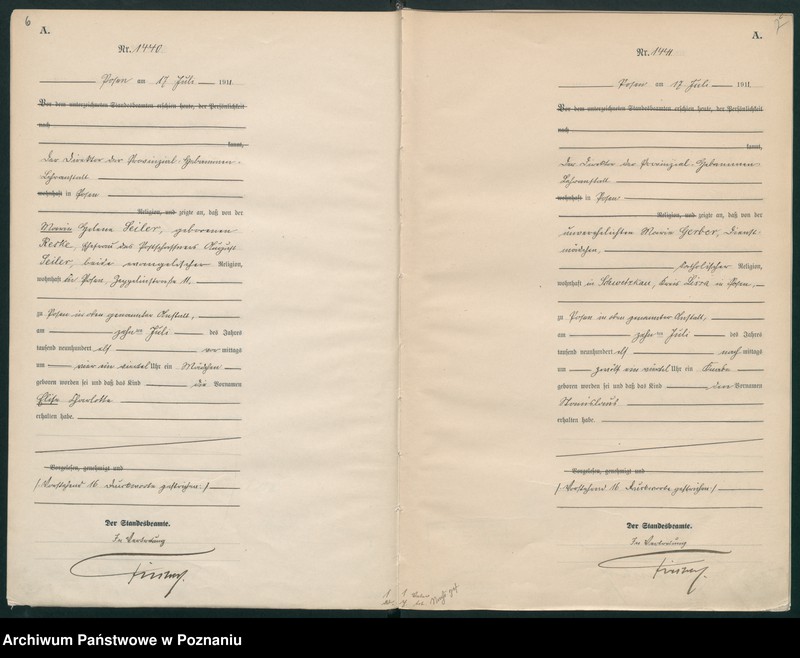 6
A.
Nr. 1440
Posen am 17 Juli 1911.
Vor dem unterzeichneten Standesbeamten erschien heute, der Persönlichkeit
nach
kannt,
der Direktor der Provinzial-Hebammen-
Lehranstalt
wohnhaft in Posen
Religion, und zeigte an, daß von der
Maria Helene Seiler, geborenen
Reske, Ehefrau des Postschaffners August
Seiler, beide evangelischer Religion,
wohnhaft in Posen, Zeppelinstraße 11,
zu Posen in oben genannter Anstalt,
am zehnten Juli des Jahres
tausend neunhundert elf vormittags
um vier ein viertel Uhr ein Mädchen
geboren worden sei und daß das Kind die Vornamen
Elise Charlotte
erhalten habe.
Vorgelesen, genehmigt und
(Vorstehend 16 Druckworte gestrichen.)
Der Standesbeamte.
In Vertretung
A.
7
Nr. 1441
Posen am 17 Juli 1911.
Vor dem unterzeichneten Standesbeamten erschien heute, der Persönlichkeit
nach
kannt,
Der Direktor der Provinzial-Hebammen-
Lehranstalt
wohnhaft in Posen
Religion, und zeigte an, daß von der
unverehelichten Maria Gerber, Dienst-
mädchen,
katholischer Religion,
wohnhaft in Schwetzkau, Kreis Lissa in Posen,
zu Posen in oben genannter Anstalt,
am zehnten Juli des Jahres
tausend neunhundert elf nachmittags
um zwölf ein viertel Uhr ein Knabe
geboren worden sei und daß das Kind den Vornamen
Stanislaus
erhalten habe.
Vorgelesen, genehmigt und
(Vorstehend 16 Druckworte gestrichen.)
Der Standesbeamte.
In Vertretung
Archiwum Państwowe w Poznaniu